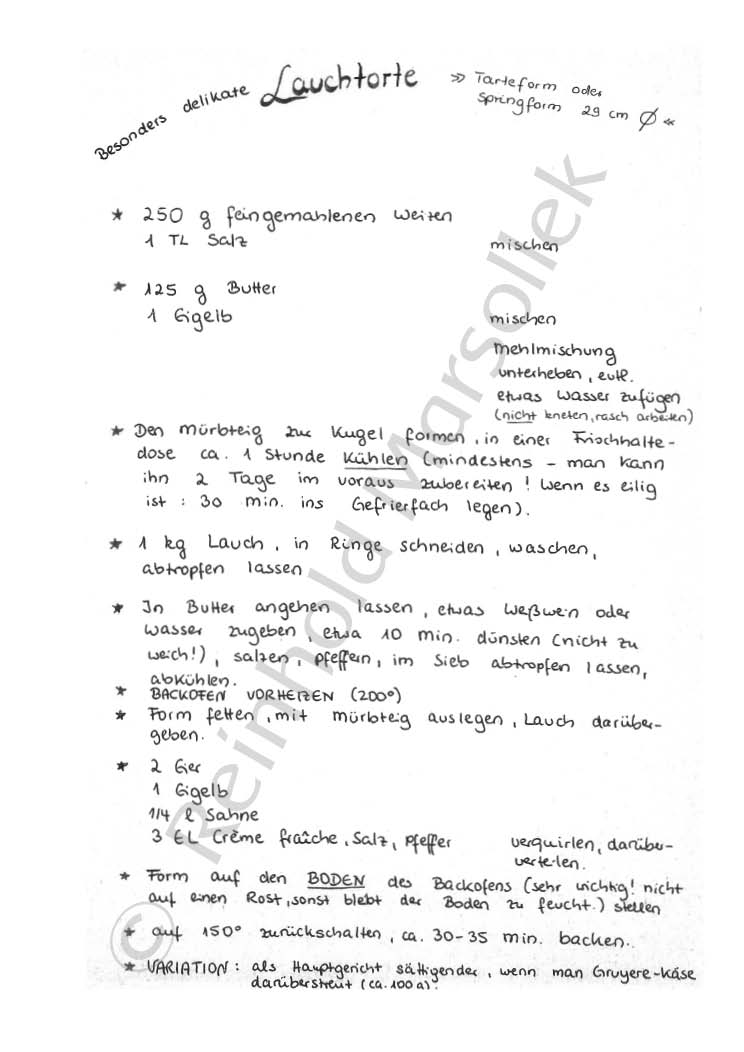 Besonders delikate Lauchtorte » Tarteform oder
Springform 29 cm Ø «
* 250 g feingemahlenen Weizen
1 TL Salz mischen
* 125 g Butter
1 Eigelb mischen
Mehlmischung
unterheben, evtl.
etwas Wasser zufügen
(nicht kneten, rasch arbeiten)
* Den Mürbteig zur Kugel formen, in einer Frischhalte-
dose ca. 1 Stunde kühlen (mindestens - man kann
ihn 2 Tage im voraus zubereiten! Wenn es eilig
ist: 30 min. ins Gefrierfach legen).
* 1 kg Lauch, in Ringe schneiden, waschen,
abtropfen lassen
* In Butter angehen lassen, etwas Weßwein oder
Wasser zugeben, etwa 10 min. dünsten (nicht zu
weich!), salzen, pfeffern, im Sieb abtropfen lassen,
abkühlen.
* BACKOFEN VORHEIZEN (200°)
* Form fetten, mit Mürbteig auslegen, Lauch darüber-
geben.
* 2 Eier
1 Eigelb
1/4 l Sahne
3 EL Crème fraîche, Salz, Pfeffer verquirlen, darüber-
verteilen.
* Form auf den BODEN des Backofens (sehr wichtig! nicht
auf einen Rost, sonst bleibt der Boden zu feucht.) stellen
* auf 150° zurückschalten, ca. 30-35 min. backen.
* VARIATION: als Hauptgericht sättigender, wenn man Gruyere-Käse
darüberstreut (ca. 100 g).
© Reinhold Marsollek